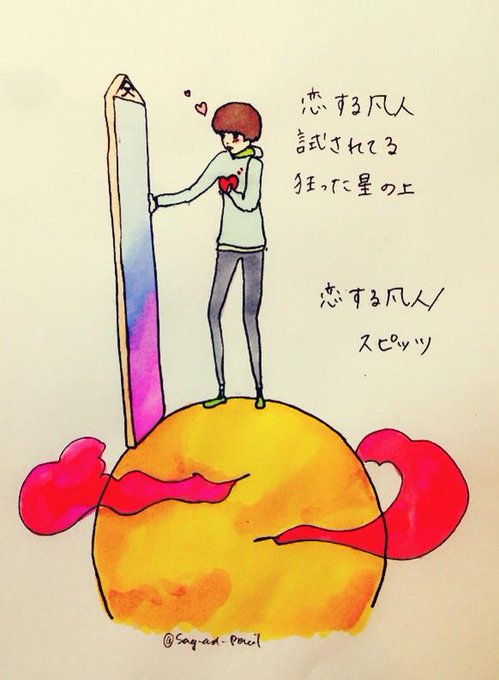 恋する凡人
試されてる
狂った星の上
恋する凡人/
スピッツ